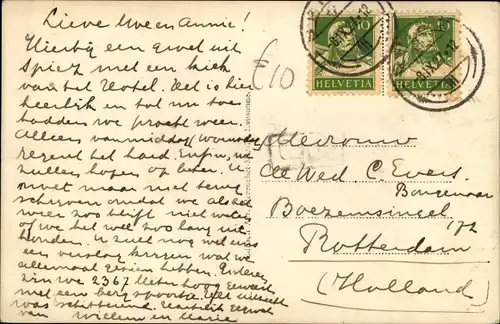 Lieve Mies en Annie!
Hierbij een groet uit
Spiez met een kiek
van het Hotel. Het is hier
heerlijk en tot nu toe
hadden we pracht weer.
Alleen vanmiddag
regent het hard. Enfin, we
zullen hopen op beter. U
moet maar niet terug
schrijven omdat we als het
weer zoo blijft niet weten
of we het wel zoo lang uit-
houden. U zult nog wel eens
een verslag krijgen wat we
allemaal gezien hebben. Gisteren
zijn we 2367 Meter hoog geweest
met een berg spoortje. Het uitzicht
was schitterend. Hartelijk gegroet
van Willem en Marie
£10
10
10
HELVETIA
HELVETIA
Mevrouw
de Wed. C. Evers.
Boezemsingel 172
Rotterdam
(Holland)